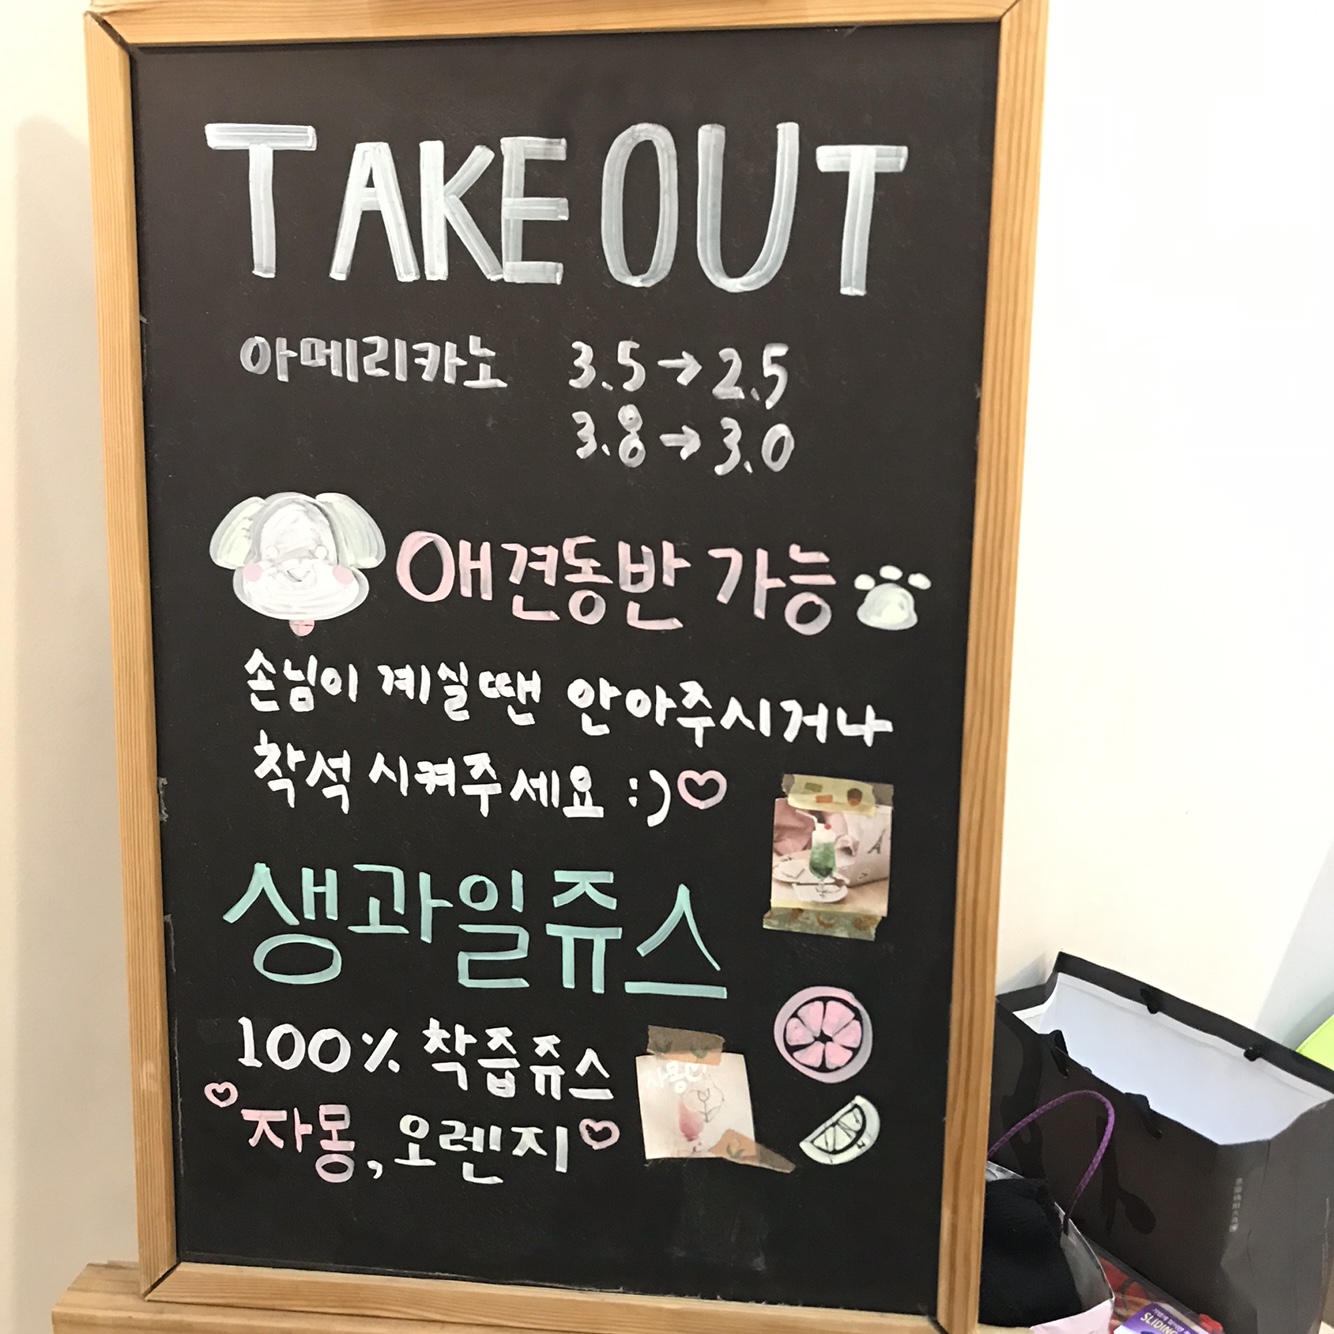 TAKE OUT
아메리카노 3.5→2.5
3.8→3.0
애견동반 가능
손님이 계실땐 안아주시거나
착석 시켜주세요 :)♡
생과일쥬스
100% 착즙쥬스
♡자몽, 오렌지♡
SLIDING